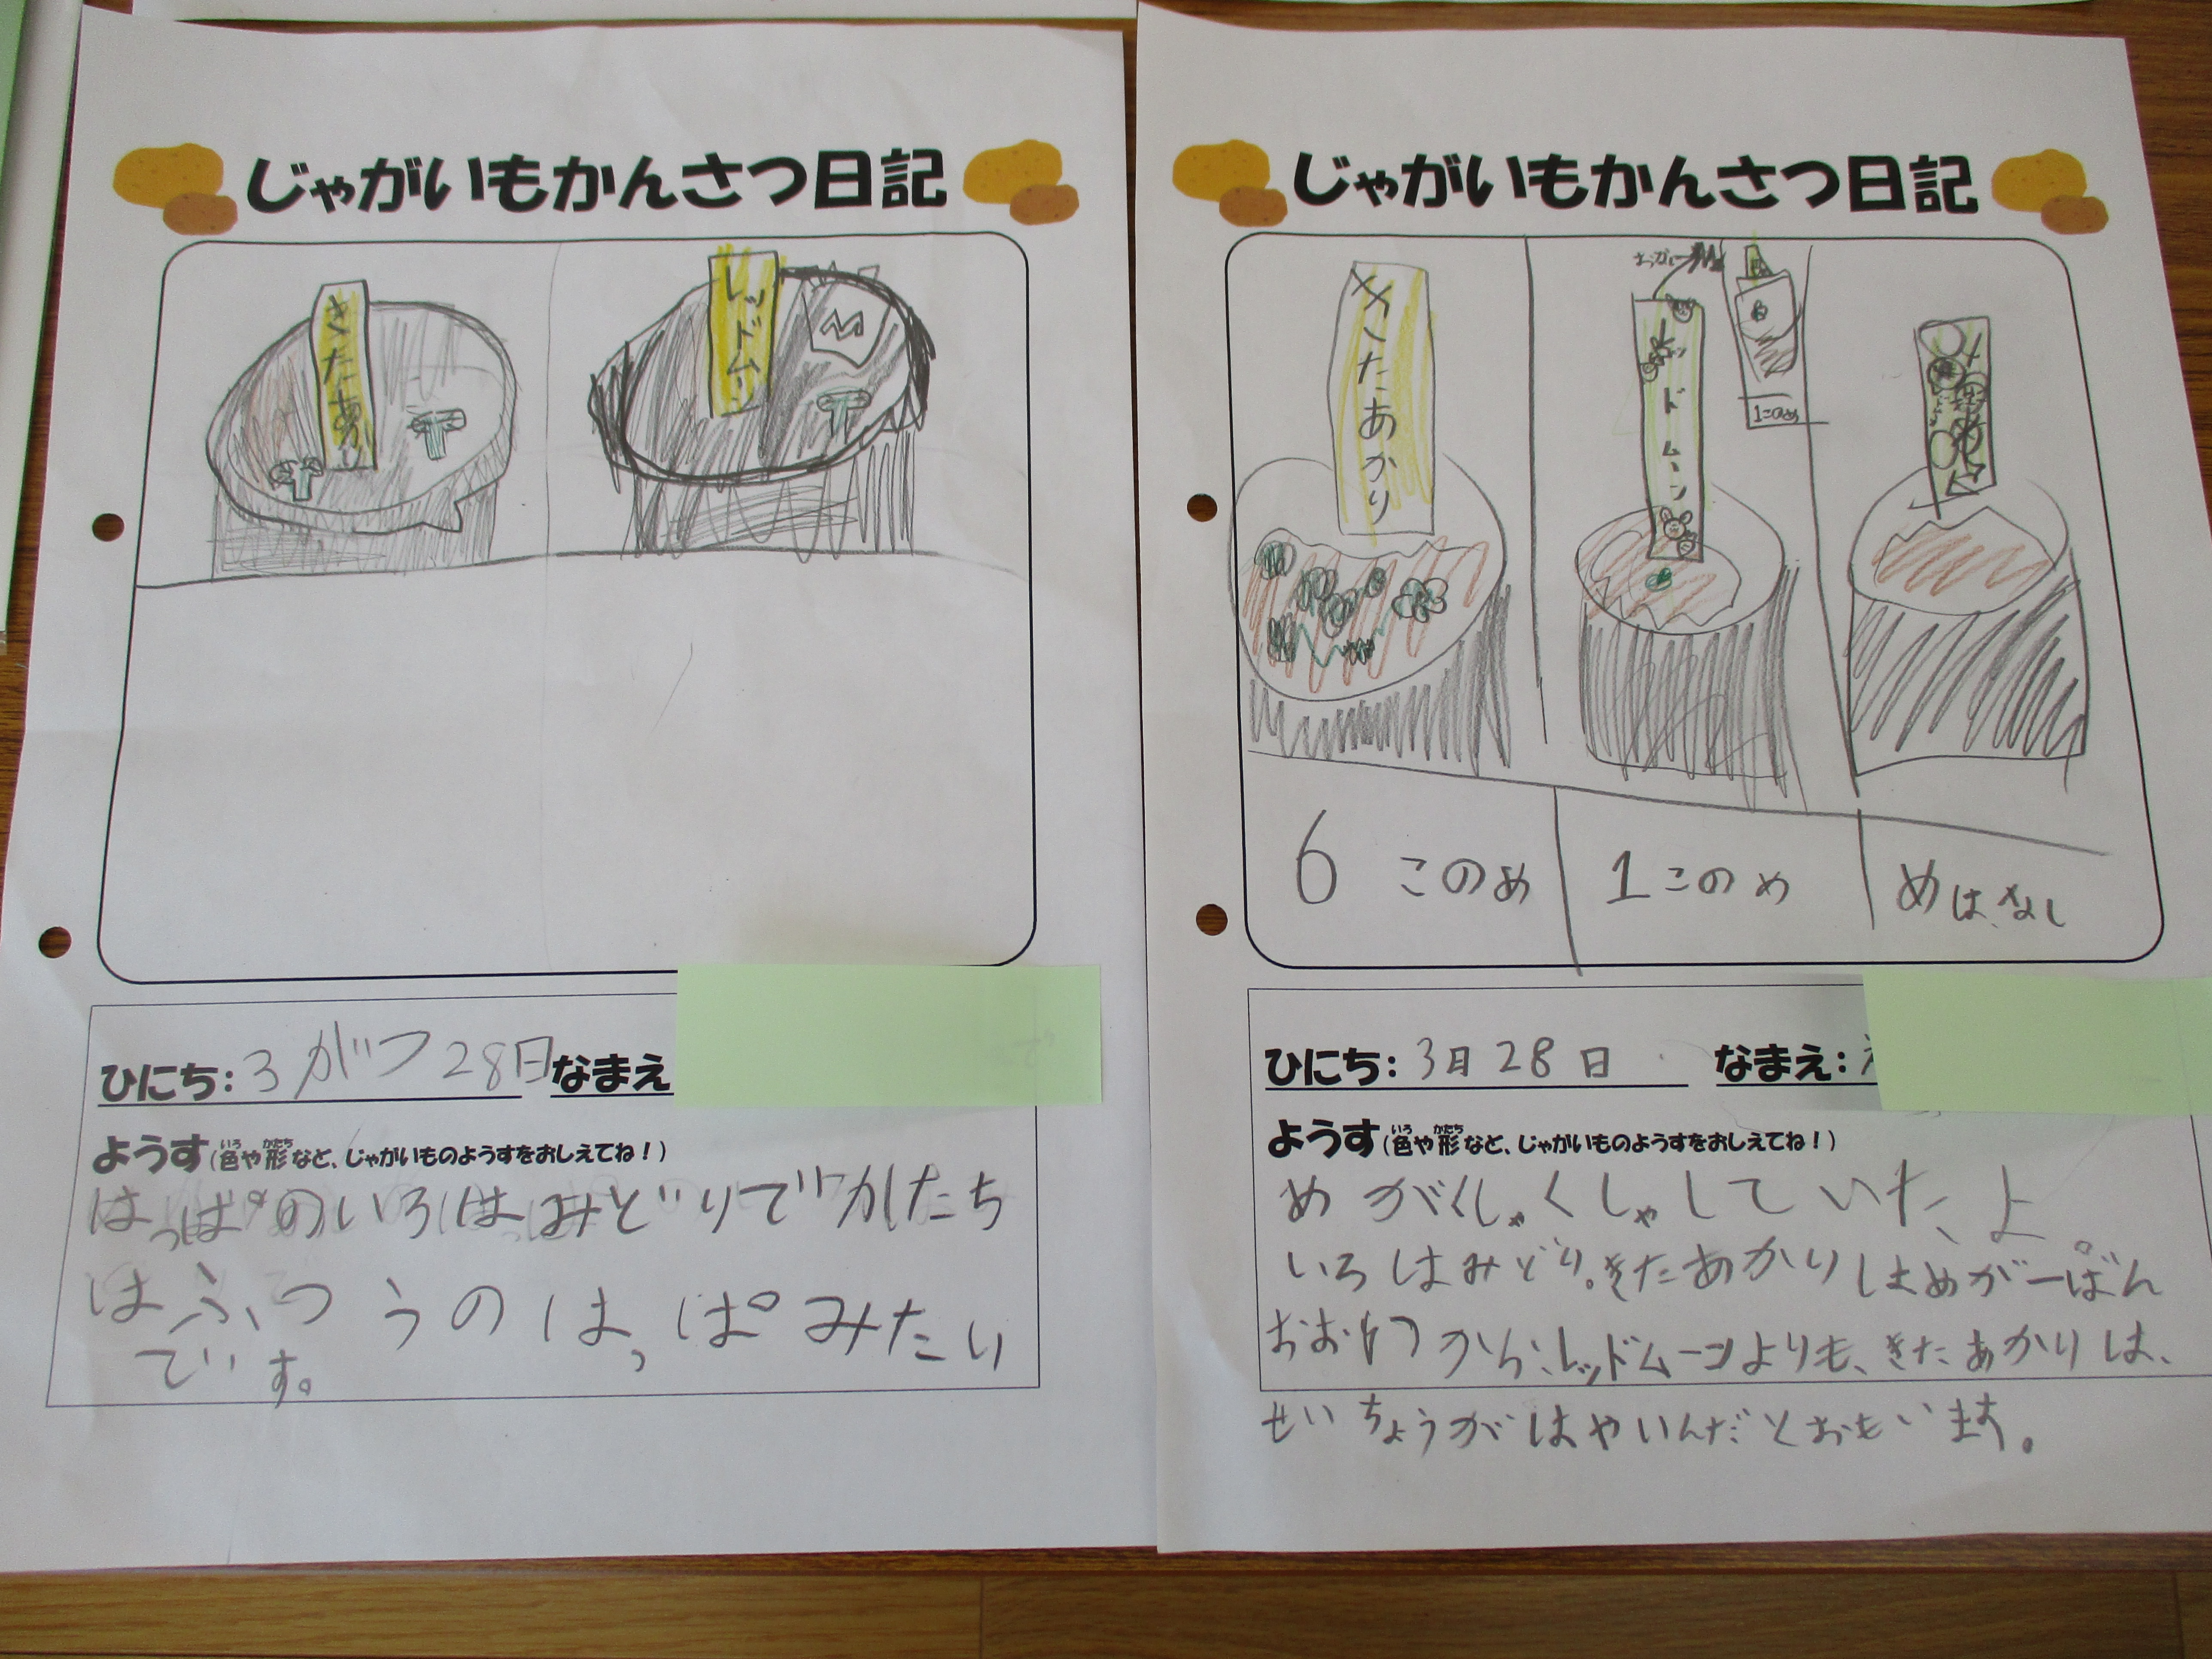 じゃがいもかんさつ日記
きたあかり
レッドムーン
ひにち:3がつ28日なまえ
ようす(色や形など、じゃがいものようすをおしえてね!)
いろ かたち
はっぱのいろはみどりでかたち
はふつうのはっぱみたい
です。
じゃがいもかんさつ日記
きたあかり
レッドムーン
1このめ
6このめ
1このめ
めはなし
ひにち:3月28日 なまえ:
ようす(色や形など、じゃがいものようすをおしえてね!)
いろ かたち
めがくしゃくしゃしていたよ
いろはみどり。きたあかりはめが一ばん
おおかったから、レッドムーンよりも、きたあかりは、
せいちょうがはやいんだとおもいます。